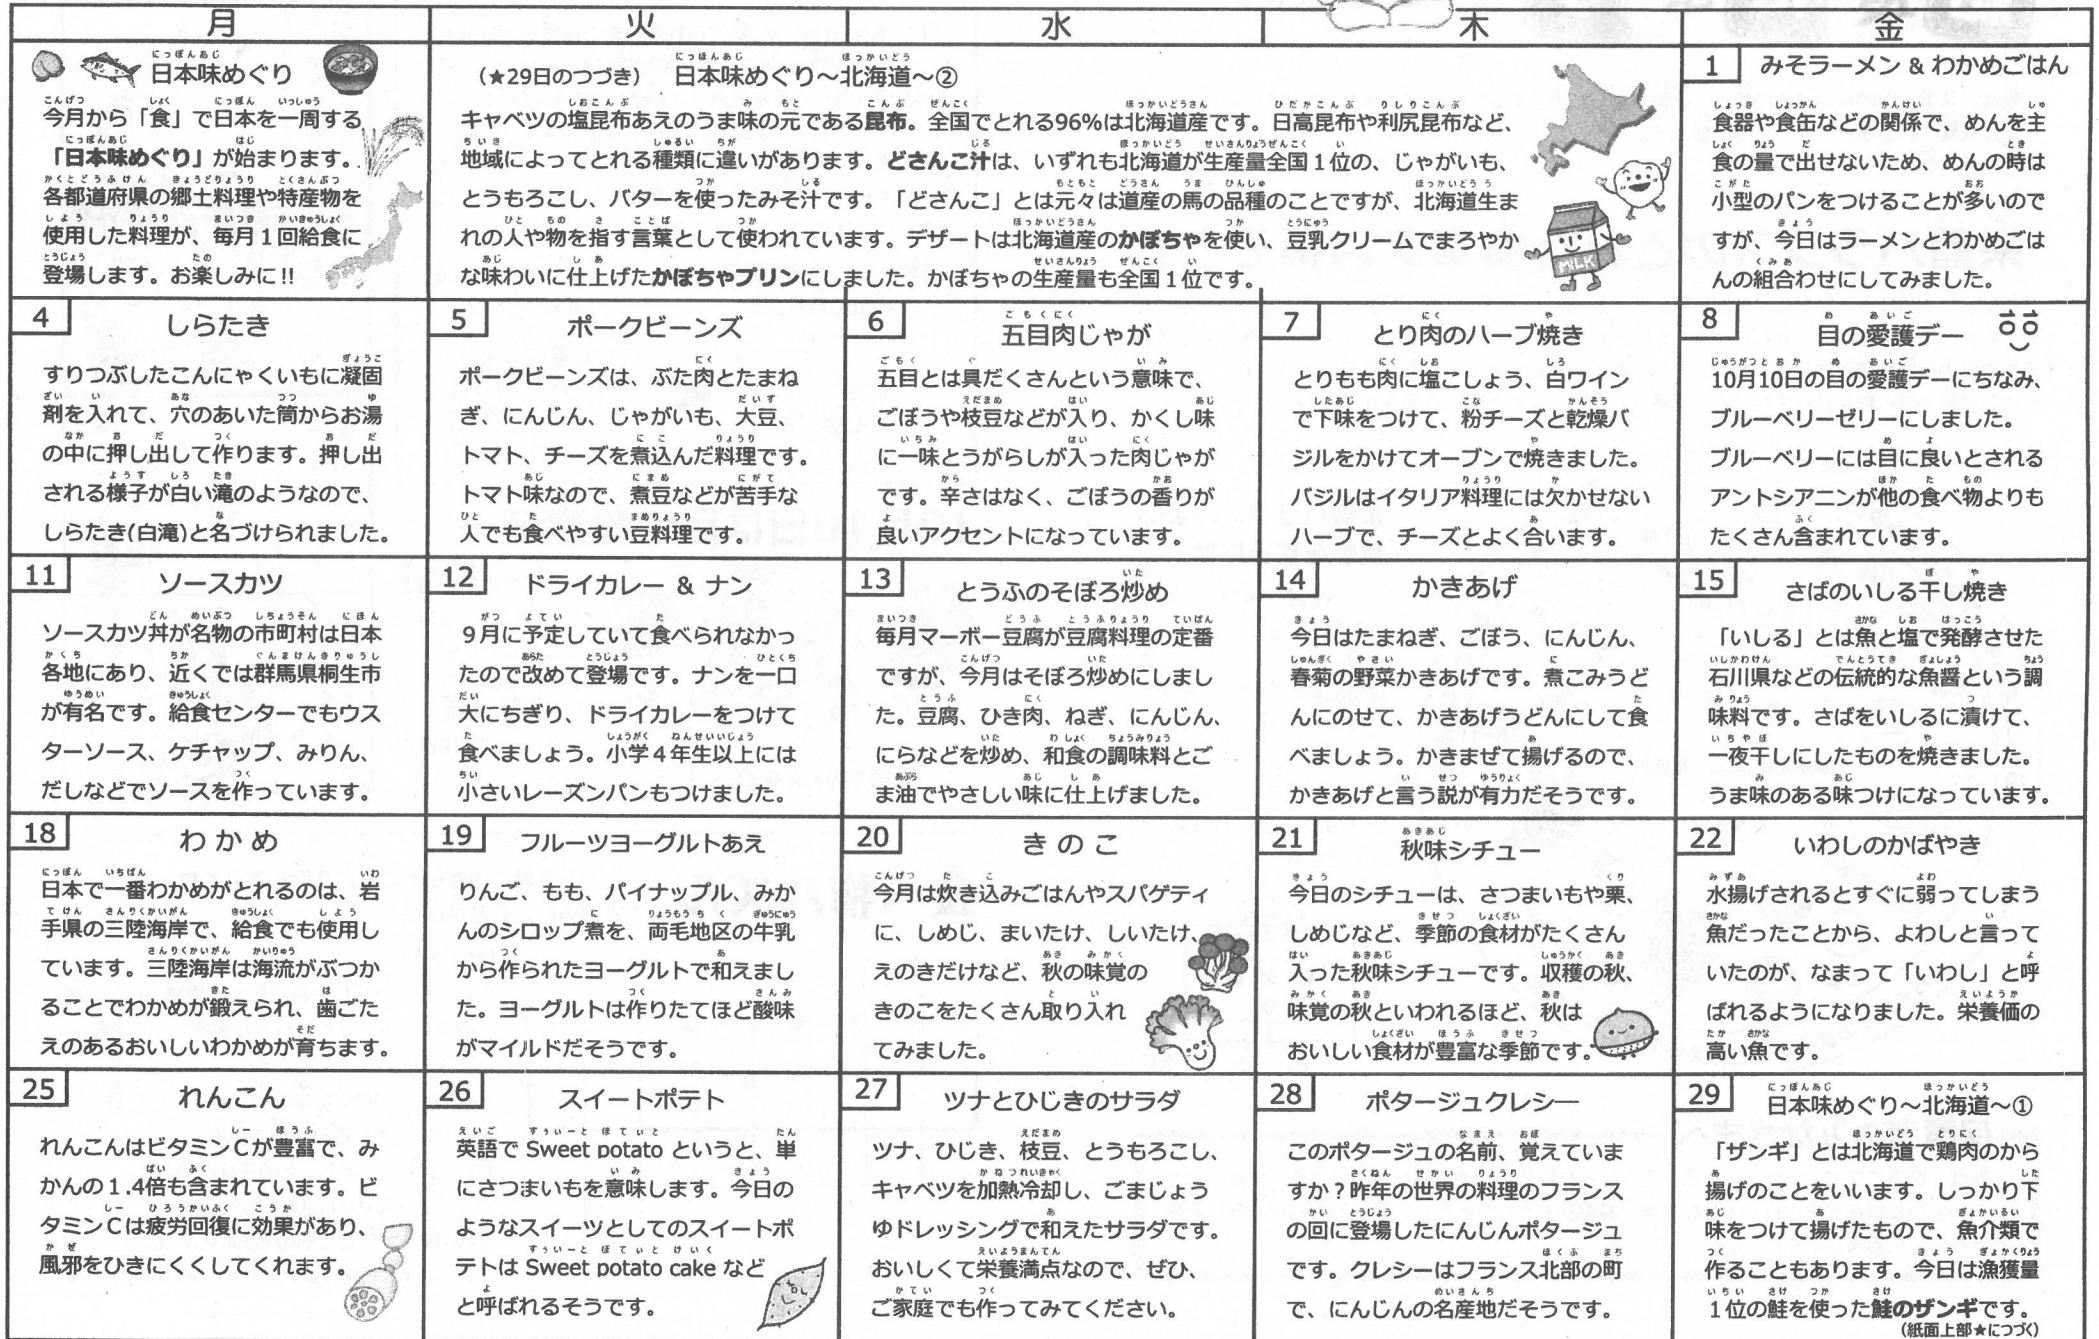 月
火
水
木
金
日本味めぐり
今月から「食」で日本を一周する
「日本味めぐり」が始まります。
各都道府県の郷土料理や特産物を
使用した料理が、毎月１回給食に
登場します。お楽しみに!!
（★29日のつづき） 日本味めぐり～北海道～②
キャベツの塩昆布あえのうま味の元である昆布。全国でとれる96％は北海道産です。日高昆布や利尻昆布など、
地域によってとれる種類に違いがあります。どさんこ汁は、いずれも北海道が生産量全国１位の、じゃがいも、
とうもろこし、バターを使ったみそ汁です。「どさんこ」とは元々は道産の馬の品種のことですが、北海道生ま
れの人や物を指す言葉として使われています。デザートは北海道産のかぼちゃを使い、豆乳クリームでまろやか
な味わいに仕上げたかぼちゃプリンにしました。かぼちゃの生産量も全国１位です。
MILK
1 みそラーメン & わかめごはん
食器や食缶などの関係で、めんを主
食の量で出せないため、めんの時は
小型のパンをつけることが多いので
すが、今日はラーメンとわかめごは
んの組合わせにしてみました。
4 しらたき
すりつぶしたこんにゃくいもに凝固
剤を入れて、穴のあいた筒からお湯
の中に押し出して作ります。押し出
される様子が白い滝のようなので、
しらたき(白滝)と名づけられました。
5 ポークビーンズ
ポークビーンズは、ぶた肉とたまね
ぎ、にんじん、じゃがいも、大豆、
トマト、チーズを煮込んだ料理です。
トマト味なので、煮豆などが苦手な
人でも食べやすい豆料理です。
6 五目肉じゃが
五目とは具だくさんという意味で、
ごぼうや枝豆などが入り、かくし味
に一味とうがらしが入った肉じゃが
です。辛さはなく、ごぼうの香りが
良いアクセントになっています。
7 とり肉のハーブ焼き
とりもも肉に塩こしょう、白ワイン
で下味をつけて、粉チーズと乾燥バ
ジルをかけてオーブンで焼きました。
バジルはイタリア料理には欠かせない
ハーブで、チーズとよく合います。
8 目の愛護デー 10 10
10月10日の目の愛護デーにちなみ、
ブルーベリーゼリーにしました。
ブルーベリーには目に良いとされる
アントシアニンが他の食べ物よりも
たくさん含まれています。
11 ソースカツ
ソースカツ丼が名物の市町村は日本
各地にあり、近くでは群馬県桐生市
が有名です。給食センターでもウス
ターソース、ケチャップ、みりん、
だしなどでソースを作っています。
12 ドライカレー & ナン
９月に予定していて食べられなかっ
たので改めて登場です。ナンを一口
大にちぎり、ドライカレーをつけて
食べましょう。小学４年生以上には
小さいレーズンパンもつけました。
13 とうふのそぼろ炒め
毎月マーボー豆腐が豆腐料理の定番
ですが、今月はそぼろ炒めにしまし
た。豆腐、ひき肉、ねぎ、にんじん、
にらなどを炒め、和食の調味料とご
ま油でやさしい味に仕上げました。
14 かきあげ
今日はたまねぎ、ごぼう、にんじん、
春菊の野菜かきあげです。煮こみうど
んにのせて、かきあげうどんにして食
べましょう。かきまぜて揚げるので、
かきあげと言う説が有力だそうです。
15 さばのいしる干し焼き
「いしる」とは魚と塩で発酵させた
石川県などの伝統的な魚醤という調
味料です。さばをいしるに漬けて、
一夜干しにしたものを焼きました。
うま味のある味つけになっています。
18 わ か め
日本で一番わかめがとれるのは、岩
手県の三陸海岸で、給食でも使用し
ています。三陸海岸は海流がぶつか
ることでわかめが鍛えられ、歯ごた
えのあるおいしいわかめが育ちます。
19 フルーツヨーグルトあえ
りんご、もも、パイナップル、みか
んのシロップ煮を、両毛地区の牛乳
から作られたヨーグルトで和えまし
た。ヨーグルトは作りたてほど酸味
がマイルドだそうです。
20 き の こ
今月は炊き込みごはんやスパゲティ
に、しめじ、まいたけ、しいたけ、
えのきだけなど、秋の味覚の
きのこをたくさん取り入れ
てみました。
21 秋味シチュー
今日のシチューは、さつまいもや栗、
しめじなど、季節の食材がたくさん
入った秋味シチューです。収穫の秋、
味覚の秋といわれるほど、秋は
おいしい食材が豊富な季節です。
22 いわしのかばやき
水揚げされるとすぐに弱ってしまう
魚だったことから、よわしと言って
いたのが、なまって「いわし」と呼
ばれるようになりました。栄養価の
高い魚です。
25 れんこん
れんこんはビタミンＣが豊富で、み
かんの１.4倍も含まれています。ビ
タミンＣは疲労回復に効果があり、
風邪をひきにくくしてくれます。
26 スイートポテト
英語で Sweet potato というと、単
にさつまいもを意味します。今日の
ようなスイーツとしてのスイートポ
テトは Sweet potato cake など
と呼ばれるそうです。
27 ツナとひじきのサラダ
ツナ、ひじき、枝豆、とうもろこし、
キャベツを加熱冷却し、ごまじょう
ゆドレッシングで和えたサラダです。
おいしくて栄養満点なので、ぜひ、
ご家庭でも作ってみてください。
28 ポタージュクレシー
このポタージュの名前、覚えていま
すか？昨年の世界の料理のフランス
の回に登場したにんじんポタージュ
です。クレシーはフランス北部の町
で、にんじんの名産地だそうです。
29 日本味めぐり～北海道～①
「ザンギ」とは北海道で鶏肉のから
揚げのことをいいます。しっかり下
味をつけて揚げたもので、魚介類で
作ることもあります。今日は漁獲量
１位の鮭を使った鮭のザンギです。
（紙面上部★につづく）